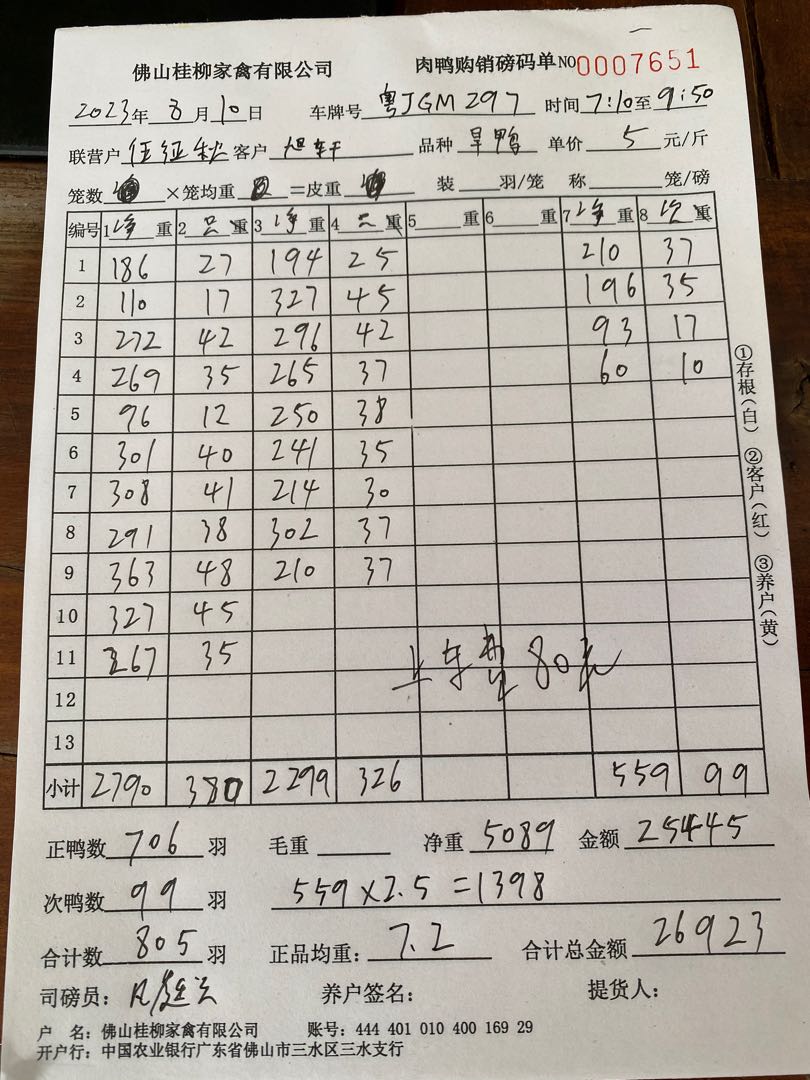 佛山桂柳家禽有限公司 肉鸭购销磅码单 NO 0007651
2023年 8月10日 车牌号 粤JGM297 时间 7:10至9:50
联营户 伍征秋 客户 旭轩 品种 旱鸭 单价 5 元/斤
笼数 ×笼均重 =皮重 装 羽/笼 称 笼/磅
编号 1 净重 2 只重 3 净重 4 只重 5 重 6 重 7 净重 8 次重
1 186 27 194 25 210 37
2 110 17 327 45 196 35
3 272 42 296 42 93 17
4 269 35 265 37 60 10
5 96 12 250 38
6 301 40 241 35
7 308 41 214 30
8 291 38 302 37
9 363 48 210 37
10 327 45
11 267 35
上车费 80元
12
13
小计 2790 380 2299 326 559 99
①存根(白) ②客户(红) ③养户(黄)
正鸭数 706 羽 毛重 净重 5089 金额 25445
次鸭数 99 羽 559×2.5=1398
合计数 805 羽 正品均重: 7.2 合计总金额 26923
司磅员: 养户签名: 提货人:
户 名: 佛山桂柳家禽有限公司 账号: 444 401 010 400 169 29
开户行: 中国农业银行广东省佛山市三水区三水支行